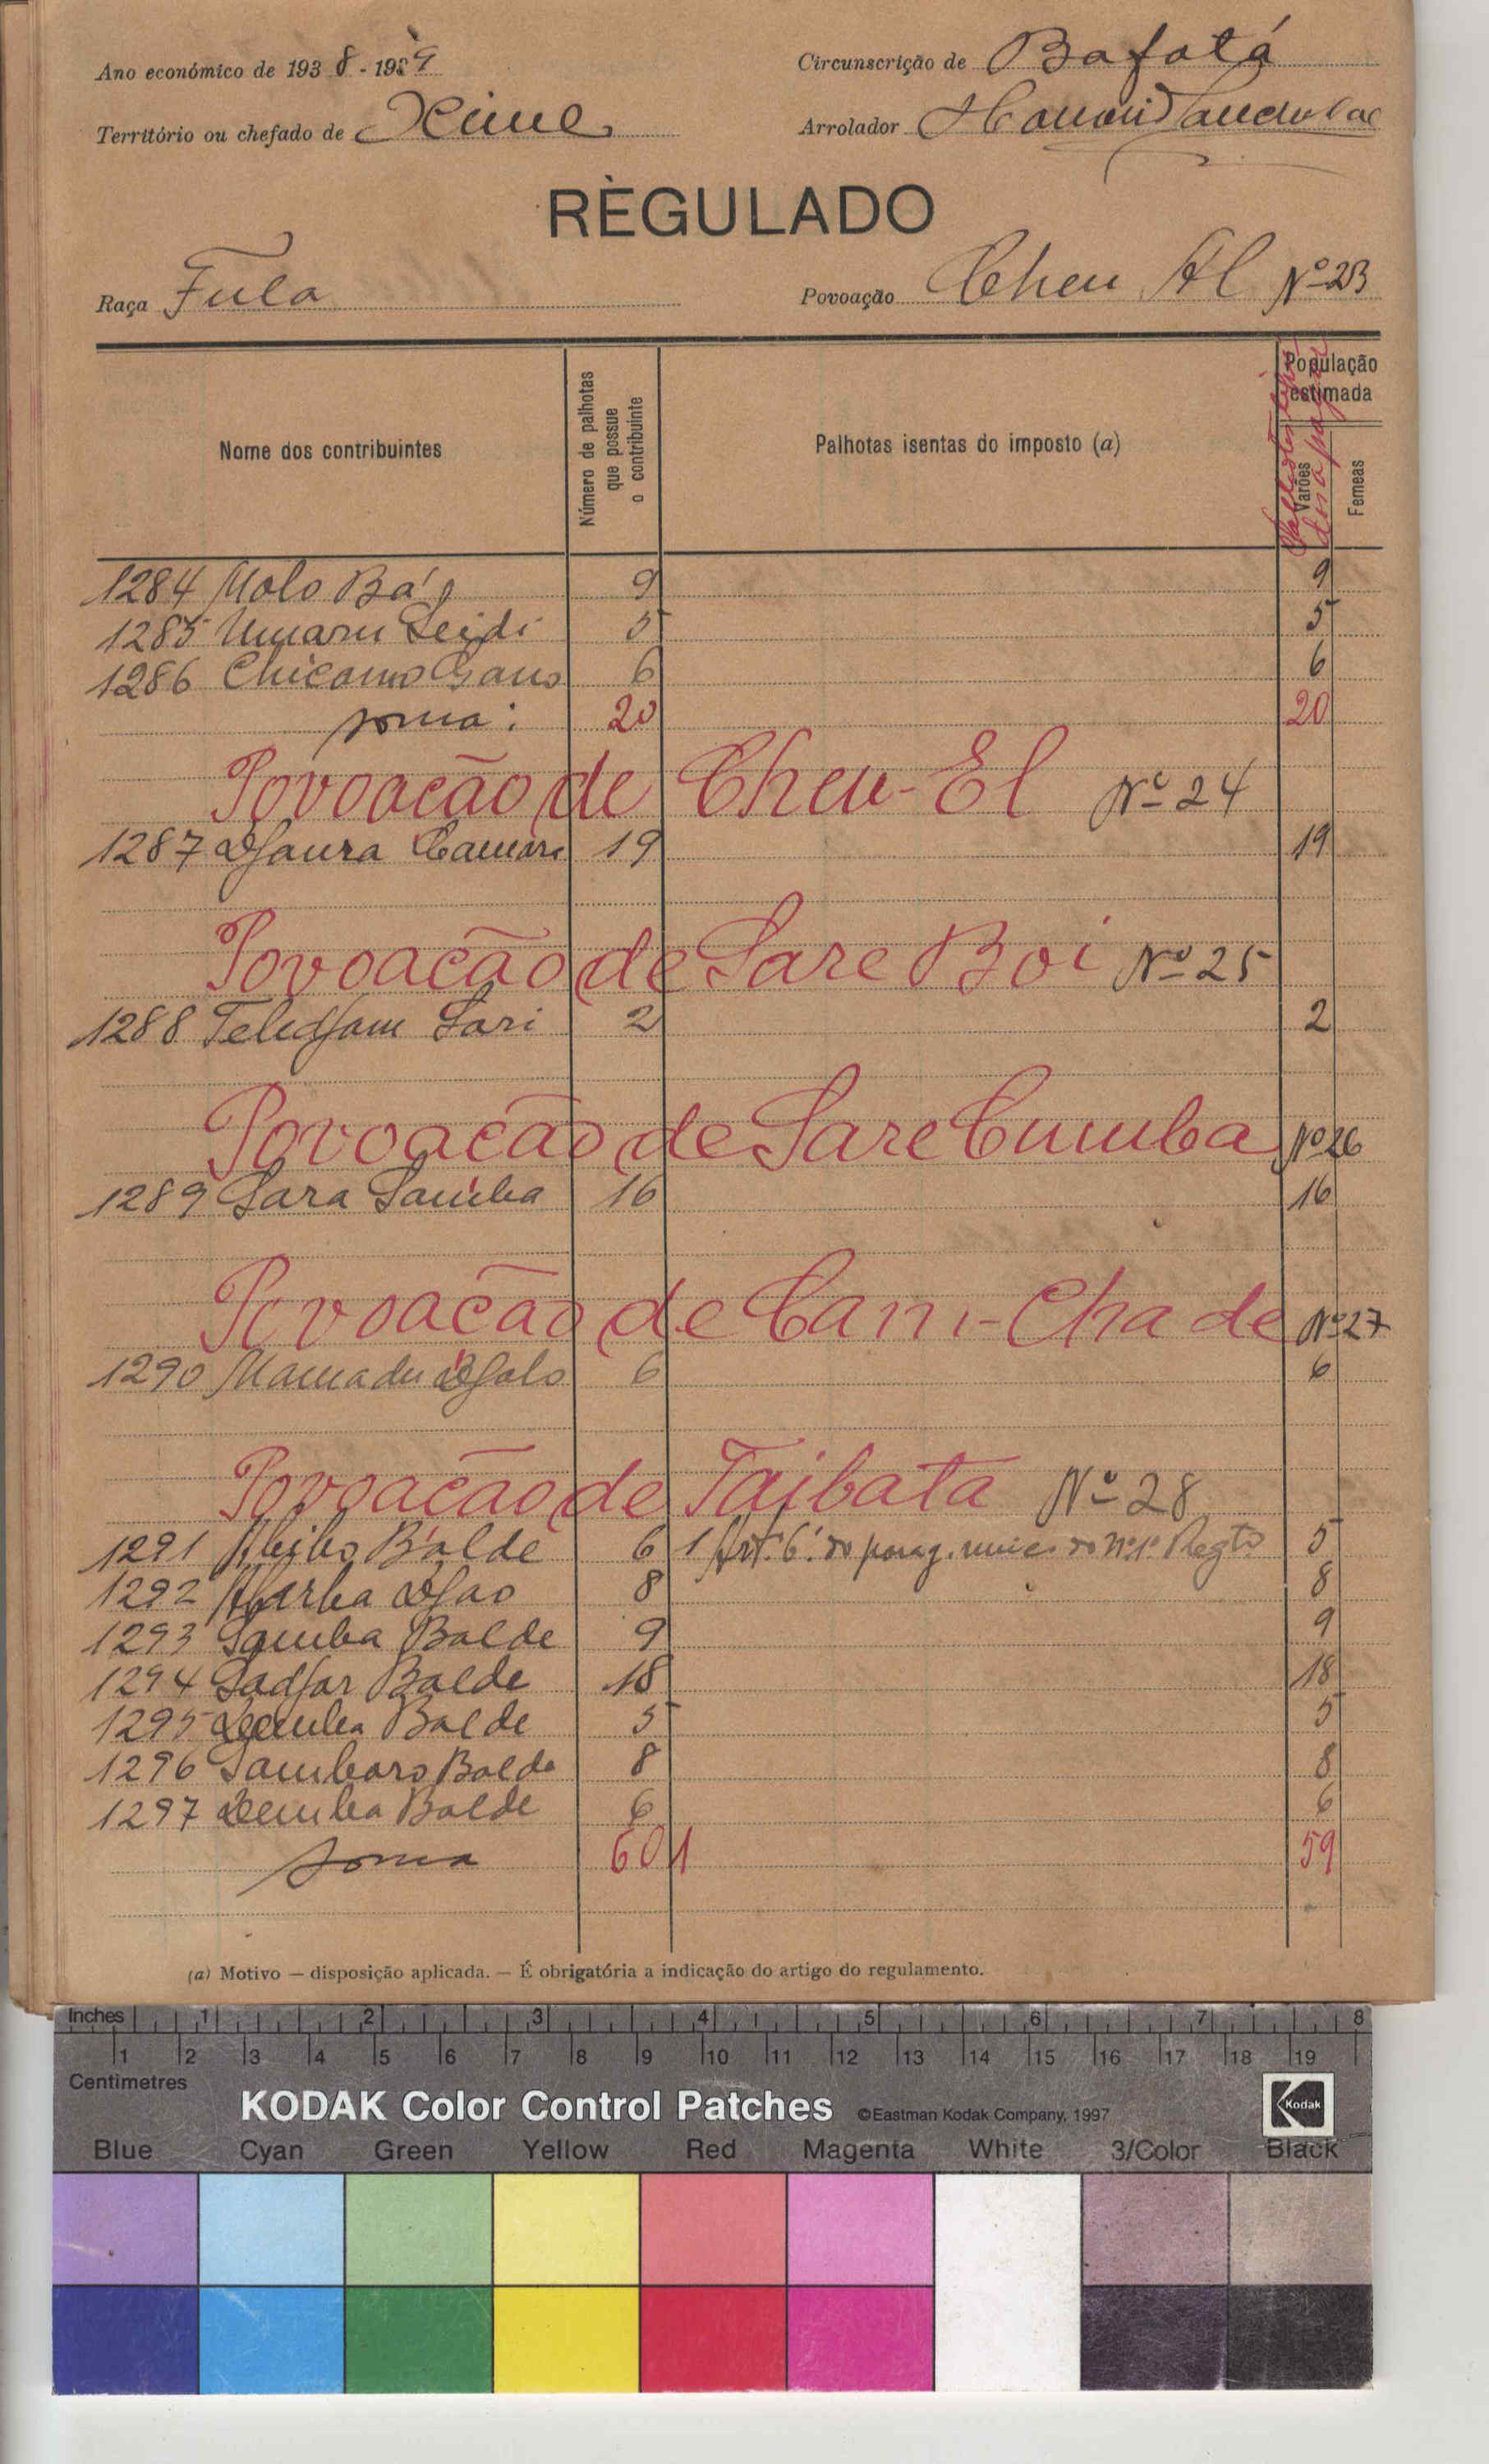 Ano económico de 1938-1939
Circunscrição de Bafatá
Território ou chefado de Xime
Arrolador
RÈGULADO
Raça Fula
Povoação Cheu Al Nº 23
Nome dos contribuintes
Número de palhotas que possue o contribuinte
Palhotas isentas do imposto (a)
População estimada
Varões
Femeas
1284 Molo Bá 9 9
1285 Umaru Seidi 5 5
1286 6 6
soma: 20 20
Povoação de Cheu-El Nº 24
1287 Djaura Camara 19 19
Povoação de Sare Boi Nº 25
1288 Teledjam Sari 2 2
Povoação de Sare Cumba Nº 26
1289 Sara Samba 16 16
Povoação de Cam-Chade Nº 27
1290 Mamadu Djalo 6 6
Povoação de Taibata Nº 28
1291 Balde 6 1 Art. 6º do parag. unico do nº 1º Regto 5
1292 Djao 8 8
1293 Samba Balde 9 9
1294 Sadjar Balde 18 18
1295 Demba Balde 5 5
1296 Samboro Balde 8 8
1297 Demba Balde 6 6
Soma 60 1 59
(a) Motivo — disposição aplicada. — É obrigatória a indicação do artigo do regulamento.
Inches 1 2 3 4 5 6 7 8
1 2 3 4 5 6 7 8 9 10 11 12 13 14 15 16 17 18 19
Centimetres
KODAK Color Control Patches ©Eastman Kodak Company, 1997 Kodak
Blue Cyan Green Yellow Red Magenta White 3/Color Black